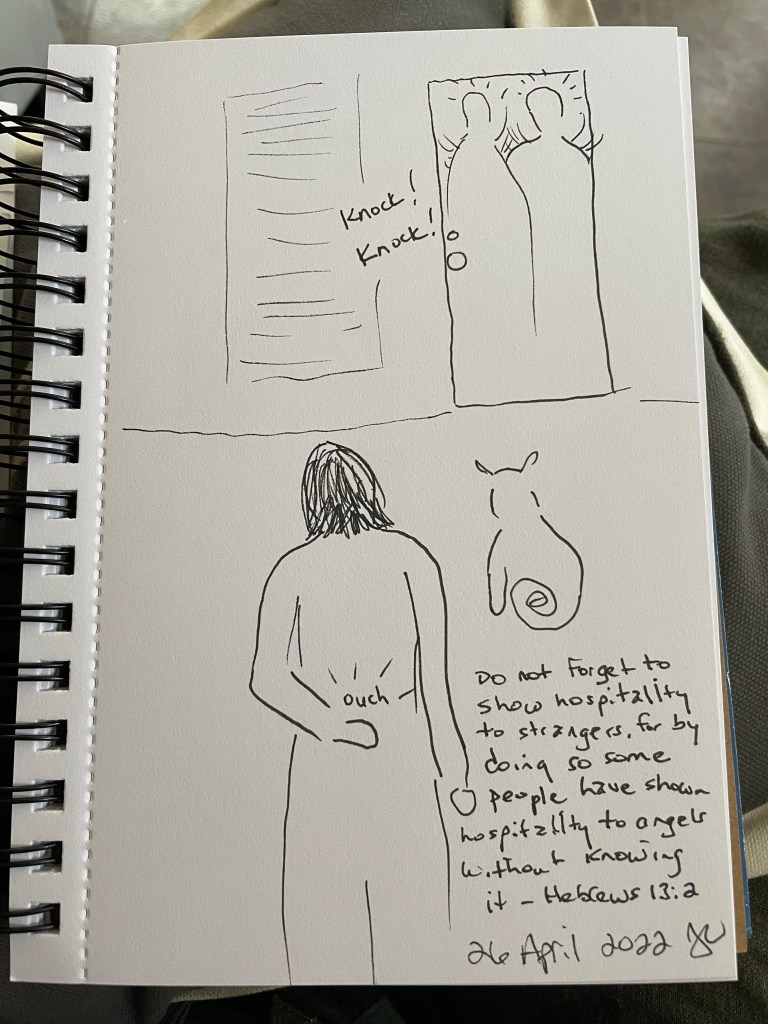 Knock!
Knock!
ouch
Do not forget to
show hospitality
to strangers, for by
doing so some
people have shown
hospitality to angels
without knowing
it - Hebrews 13:2
26 April 2022